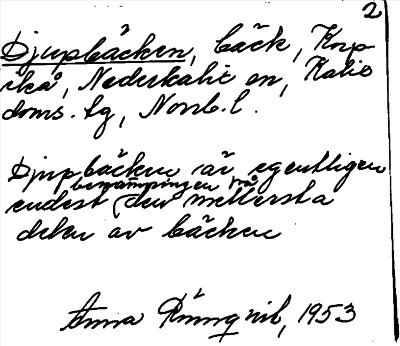 2
Djupbäcken, bäck, Korp
ikå, Nederkalix sn, Kalix
doms. tg, Norrb. l.
Djupbäcken är egentligen
benämningen på
endast den mellersta
delen av bäcken
Anna Rönnqvist, 1953